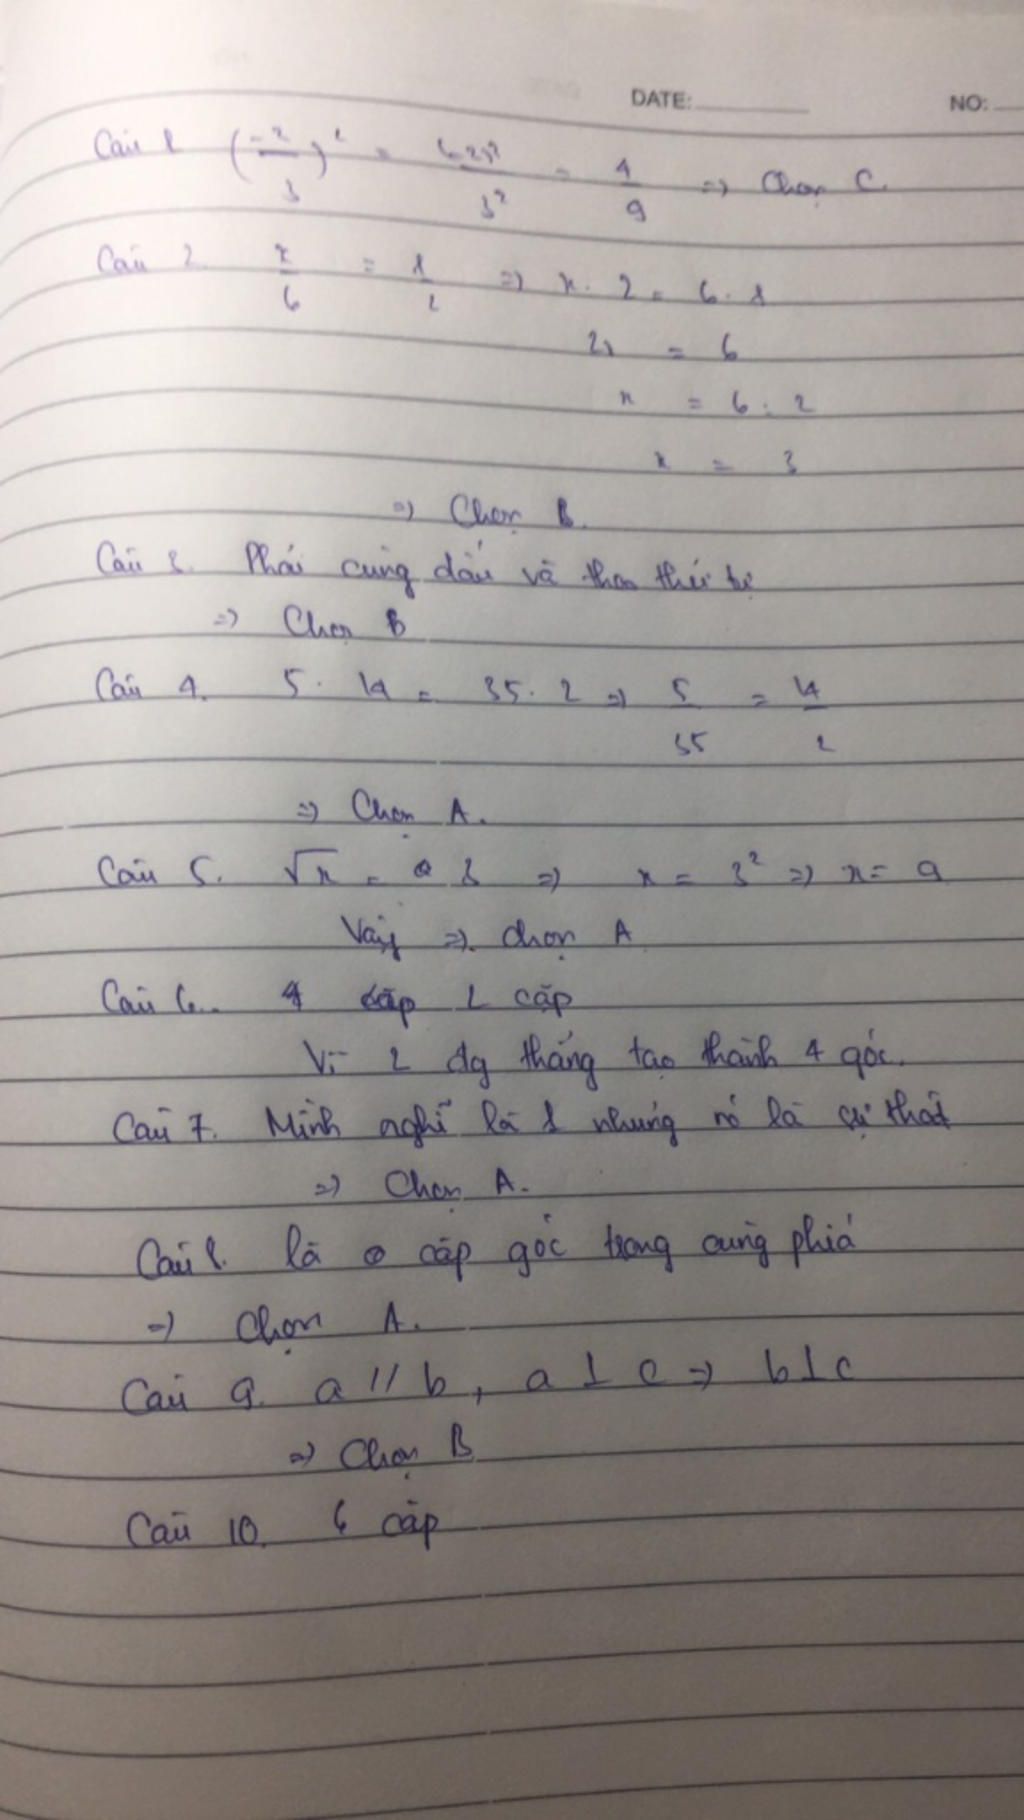 DATE: NO:
Câu 1 (-2/3)² = (-2)²/3² = 4/9 => Chọn C.
Câu 2. x/6 = 1/2 => x. 2 = 6. 1
2x = 6
x = 6 : 2
x = 3
=> Chọn B.
Câu 3. Phải cùng dấu và theo thứ tự
=> Chọn B
Câu 4. 5. 14 = 35. 2 => 5/35 = 14/2
=> Chọn A.
Câu 5. √x = 3 => x = 3² => x = 9
Vậy => chọn A
Câu 6. 4 cặp 2 cặp
Vì 2 đg thẳng tạo thành 4 góc.
Câu 7. Mình nghĩ là 1 nhưng nó là sự thật
=> Chọn A.
Câu 8. là cặp góc trong cùng phía
=> Chọn A.
Câu 9. a // b, a ⊥ c => b ⊥ c
=> Chọn B
Câu 10. 6 cặp